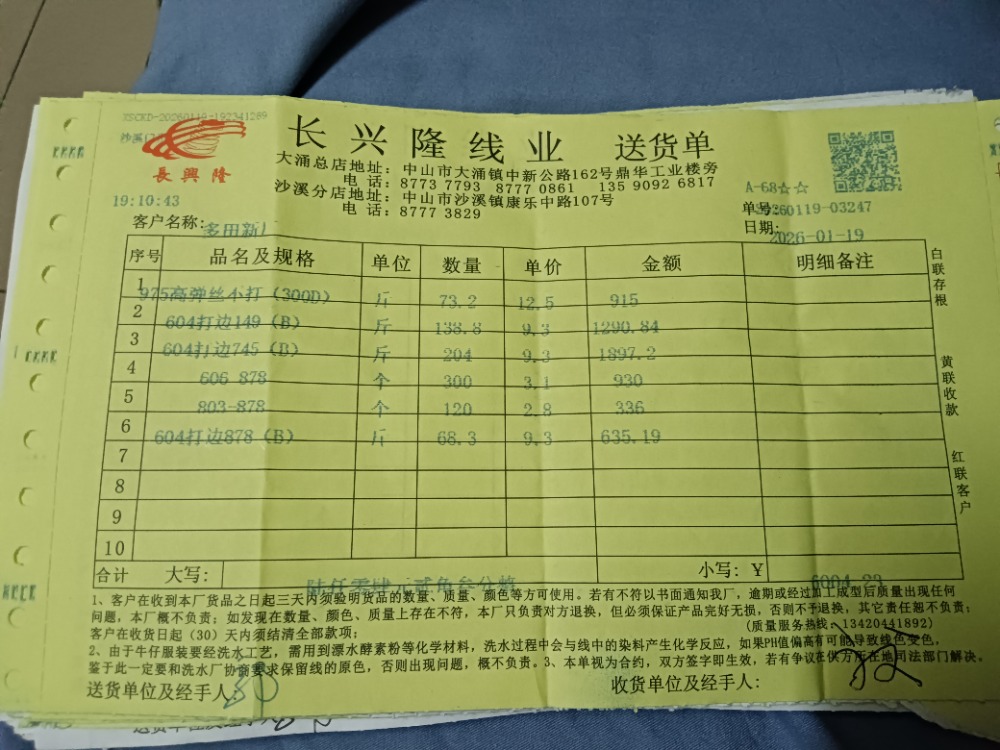 XSCKD-20260119-192341289
長興隆
长兴隆线业 送货单
大涌总店地址：中山市大涌镇中新公路162号鼎华工业楼旁
电话：8773 7793 8777 0861 135 9092 6817
沙溪分店地址：中山市沙溪镇康乐中路107号
电话：8777 3829
A-68☆☆
19:10:43
单号: 20260119-03247
客户名称: 多田新
日期: 2026-01-19
序号 品名及规格 单位 数量 单价 金额 明细备注
1 975高弹丝不打（300D） 斤 73.2 12.5 915
2 604打边149（B） 斤 138.8 9.3 1290.84
3 604打边745（B） 斤 204 9.3 1897.2
4 606 878 个 300 3.1 930
5 803-878 个 120 2.8 336
6 604打边878（B） 斤 68.3 9.3 635.19
7
8
9
10
合计 大写： 陆仟零肆元贰角叁分整 小写：￥ 6004.23
白联存根
黄联收款
红联客户
1、客户在收到本厂货品之日起三天内须验明货品的数量、质量、颜色等方可使用。若有不符以书面通知我厂，逾期或经过加工成型后质量出现任何
问题，本厂概不负责；如发现在数量、颜色、质量上存在不符，本厂只负责对方退换，但必须保证产品完好无损，否则不予退换，其它责任恕不负责；
客户在收货日起（30）天内须结清全部款项； （质量服务热线：13420441892）
2、由于牛仔服装要经洗水工艺，需用到漂水酵素粉等化学材料，洗水过程中会与线中的染料产生化学反应，如果PH值偏高有可能导致线色变色，
鉴于此一定要和洗水厂协商要求保留线的原色，否则出现问题，概不负责。3、本单视为合约，双方签字即生效，若有争议在供方所在地司法部门解决。
送货单位及经手人：
收货单位及经手人：